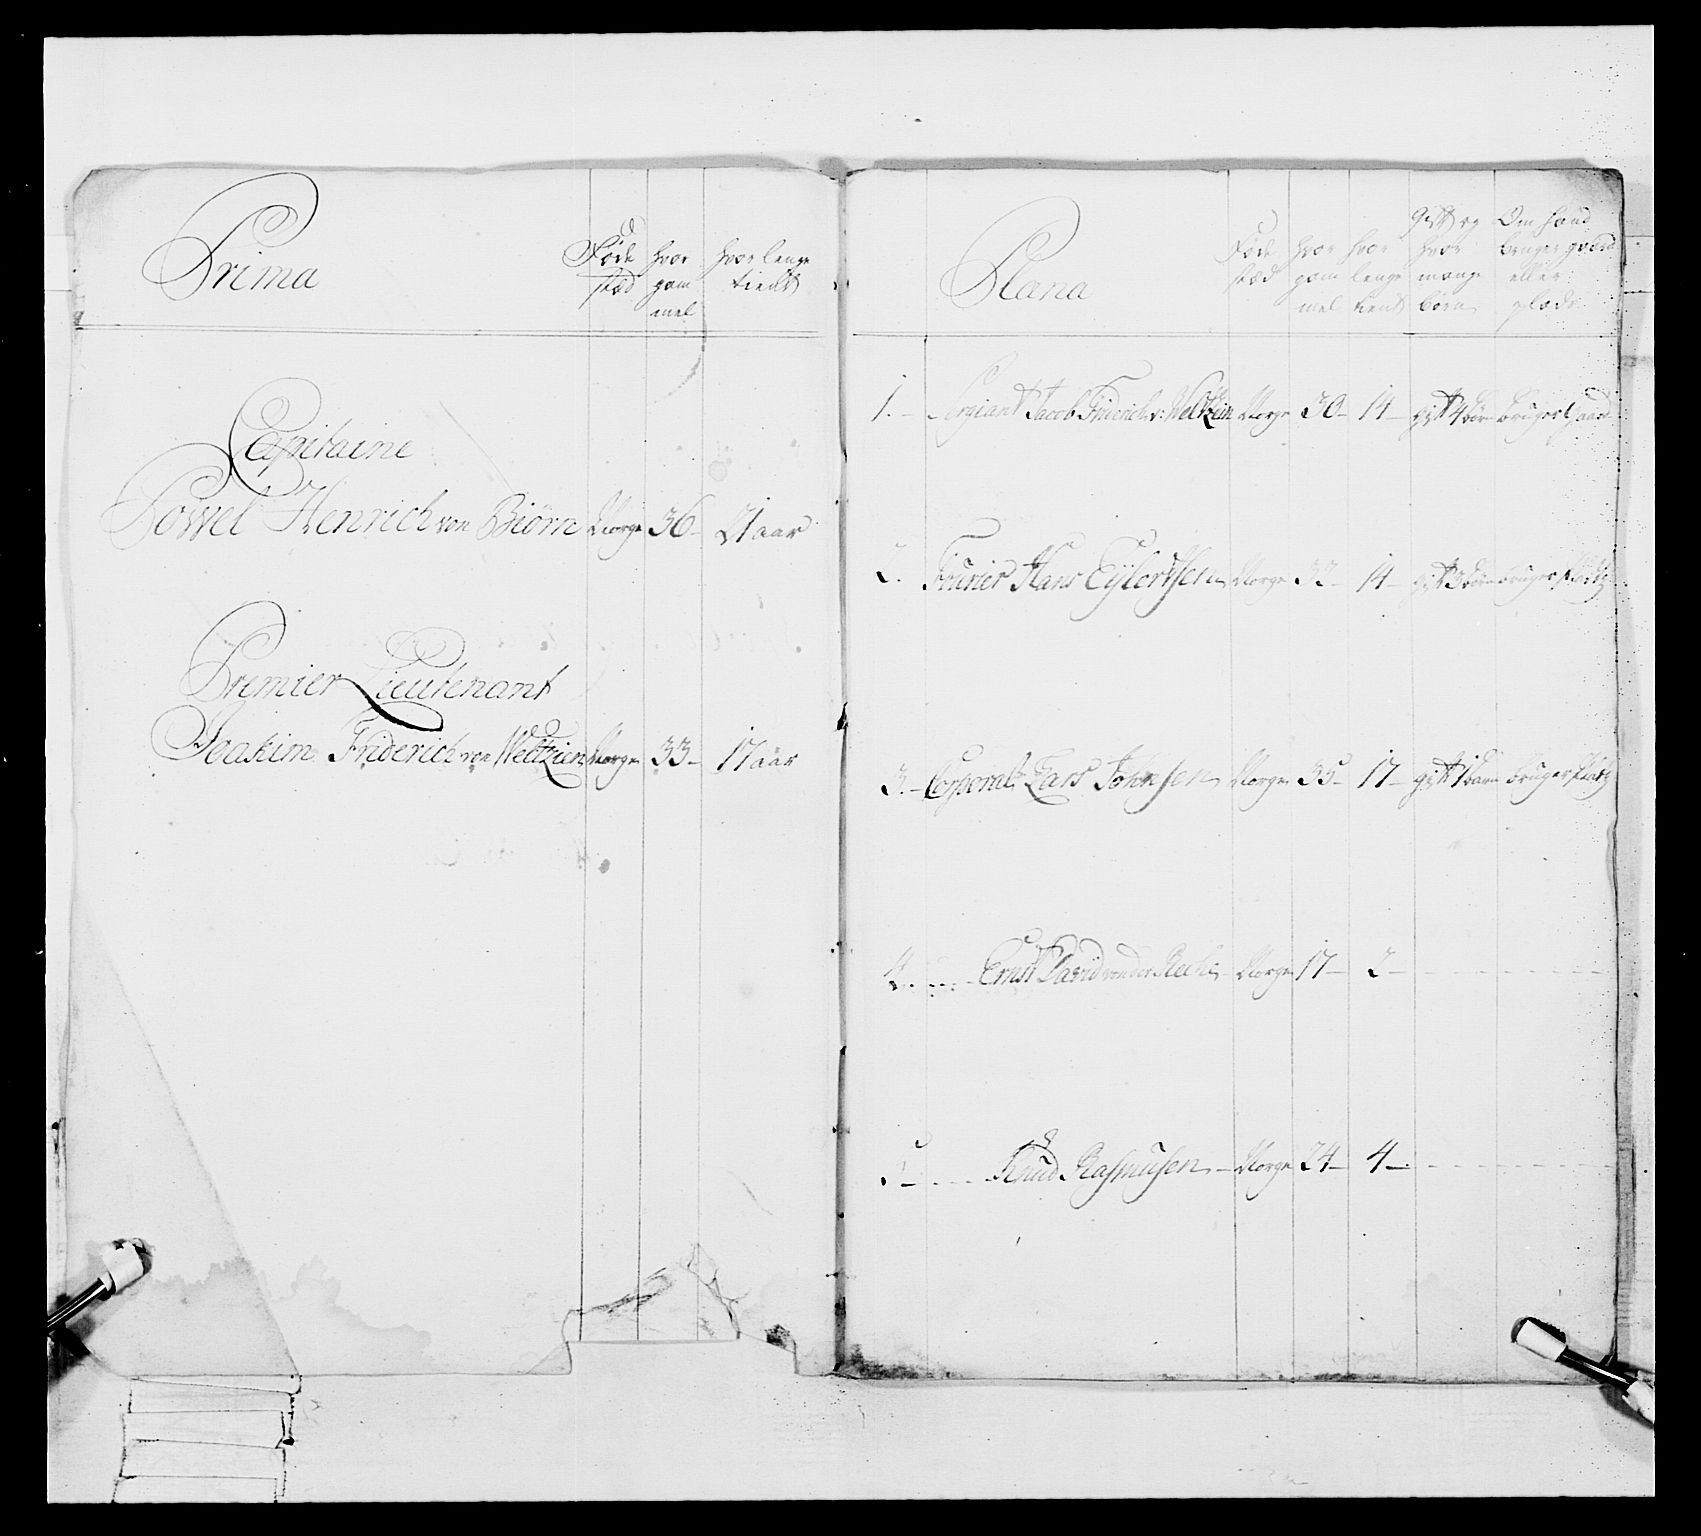 Prima
Føde stæd
hvor gam mel
hvor lenge tient
Capitaine
Powel Henrich von Biørn Norge 36 21 aar
Premier Lieutenant
Joakim Friderich von Weltzien Norge 33 17 aar
Plana
Føde stæd
hvor gam mel
hvor lenge tient
gift og hvor mange børn
Om hand bruger gaard eller plads
1. Sergiant Jacob Friderich v: Weltzien Norge 30 14 gift 4 børn bruger Gaard
2. Fourier Hans Eylertsen Norge 32 14 gift 3 børn bruger platz
3. Corporal Lars Johnsen Norge 35 17 gift 1 barn bruger platz
4. Ernst David von der Recke Norge 17 2
5 Knud Rasmusen Norge 24 4